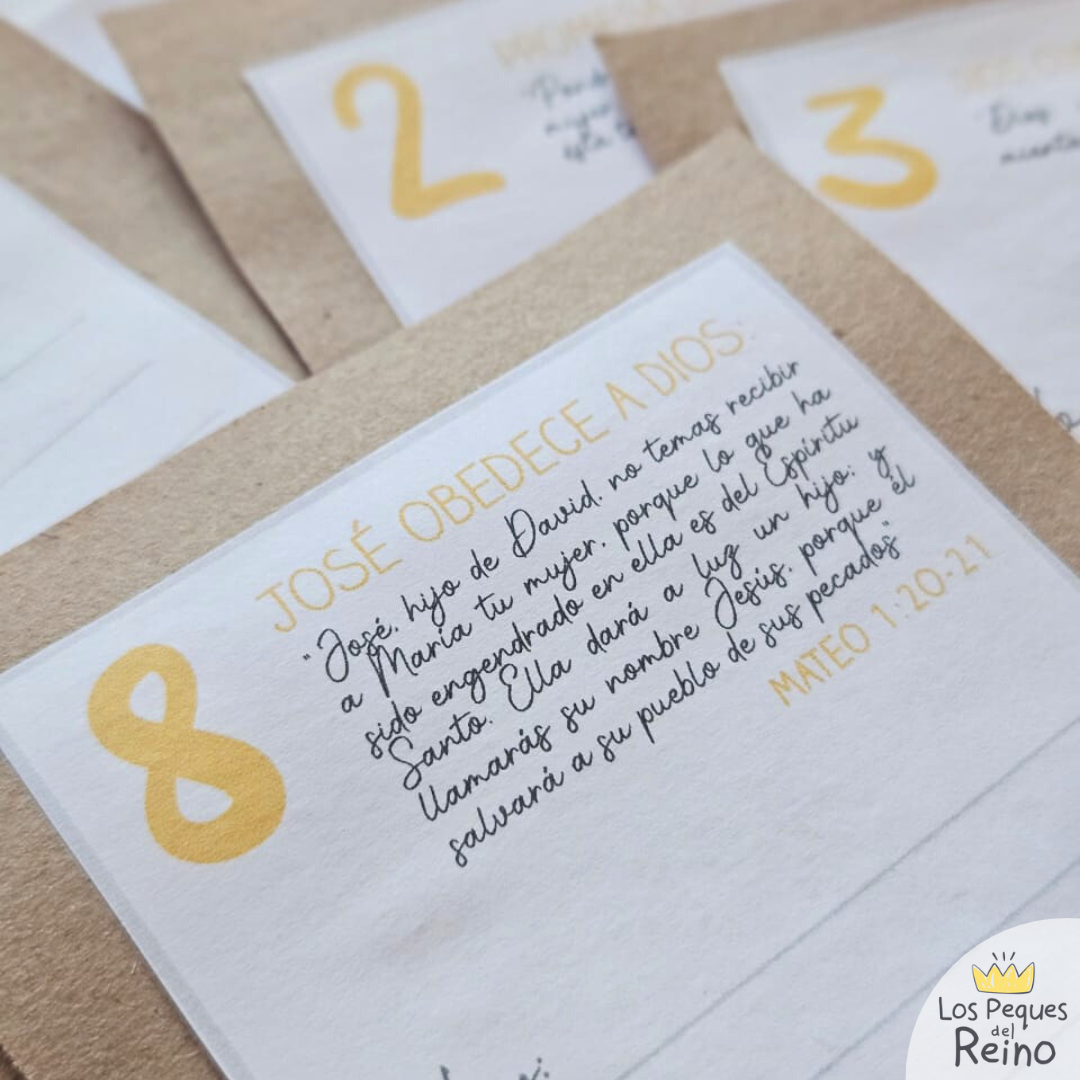 2
3
Dios
8
JOSÉ OBEDECE A DIOS:
"José, hijo de David, no temas recibir
a María tu mujer, porque lo que ha
sido engendrado en ella es del Espíritu
Santo. Ella dará a luz un hijo; y
llamarás su nombre Jesús, porque él
salvará a su pueblo de sus pecados"
MATEO 1:20-21
Los Peques
del
Reino